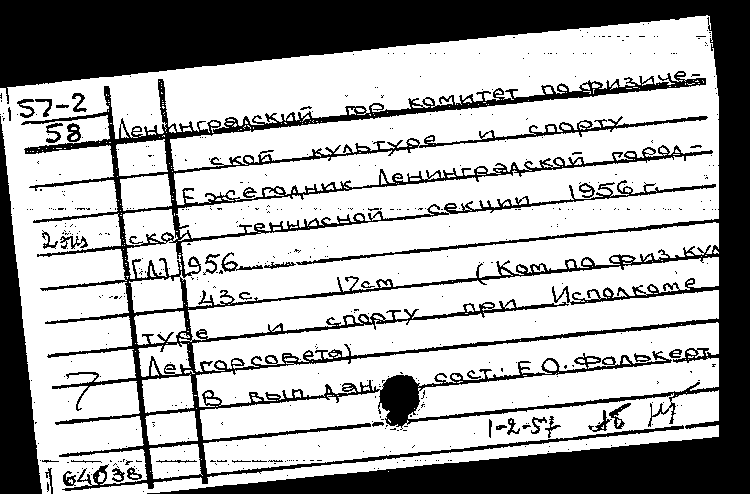 57-2
58
Ленинградский гор комитет по физиче-
ской культуре и спорту
Ежегодник Ленинградской город-
2 экз ской теннисной секции 1956 г.
[Л.], 1956
43 с. 17 cm (Ком. по физ. куль
туре и спорту при Исполкоме
Ленгорсовета)
7 В вып. дан. сост.: Е.О. Фалькерт
1-2-57
64038